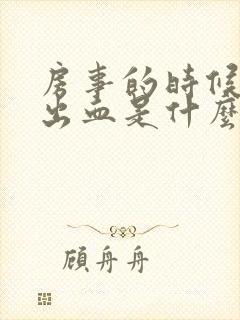 房事的時候
出血是什麼
顧舟舟